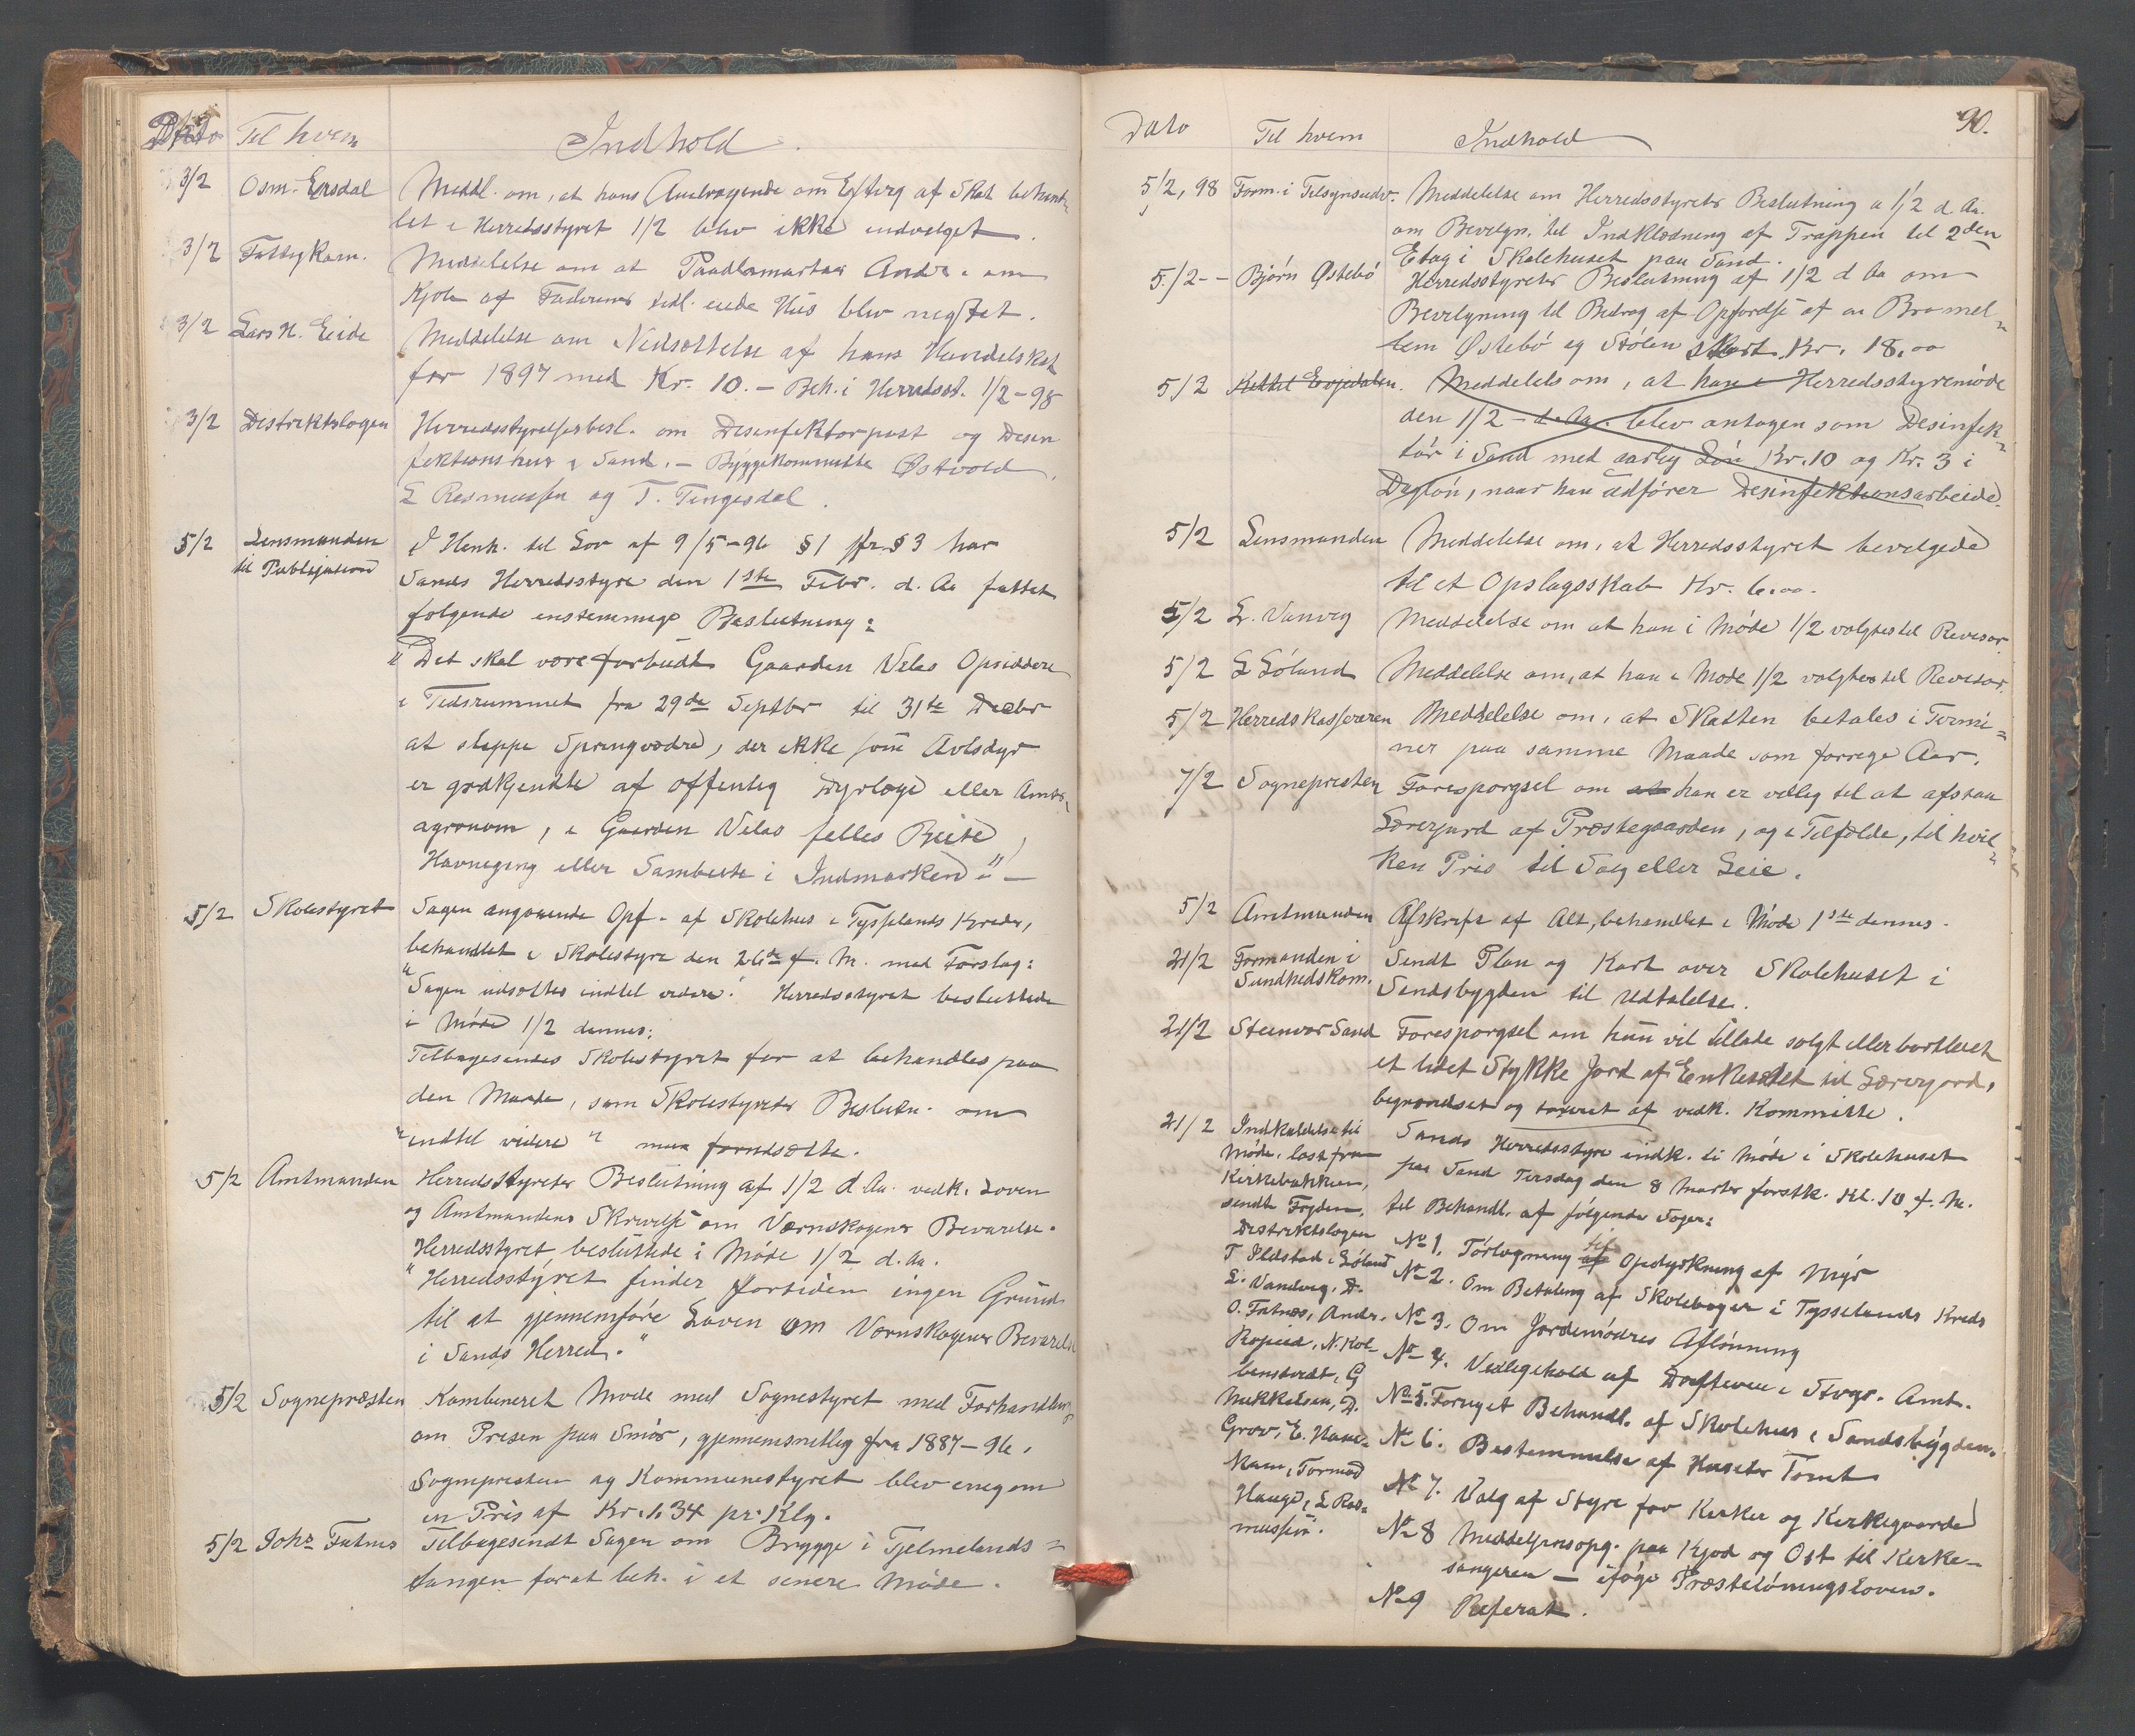 Dato Til hvem Indhold.
3/2 Osm. Ersdal Meddl. om, at hans Andragende om Efterg af Skat behand-
let i Herredsstyret 1/2 blev ikke indvilget.
3/2 Fattigkom. Meddelelse om at Andr. om
Kjøb af Hus blev negtet.
3/2 Lars H. Eide Meddelelse om Nedsættelse af hans Skat
for 1897 med Kr. 10. – Beh. i Herredsst. 1/2-98
3/2 Distriktslægen Herredsstyrelsesbesl. om Desinfektorpost og Desin
fektionshus i Sand. – Byggekommitte Østvold,
L Rasmussen og T. Tingesdal.
5/2 Lensmanden I Henh. til Lov af 9/5-96 §1 jfr. §3 har
til Publikation Sands Herredsstyre den 1ste Febr. d. Aa fattet
følgende enstemmige Beslutning:
"Det skal være forbudt Gaarden Velas Opsiddere
i Tidsrummet fra 29de Septbr til 31te Decbr
at sleppe Springvædre, der ikke som Avlsdyr
er godkjendte af offentlig Dyrlæge eller Amts-
agronom, i Gaarden Velas felles Beite,
Havnegang eller Sambeite i Indmarken" –
5/2 Skolestyret Sagen angaaende Opf. af Skolehus i Tysselands Kreds,
behandlet i Skolestyre den 26de f. M. med Forslag:
"Sagen udsættes indtil videre". Herredsstyret besluttede
i Møde 1/2 dennes:
Tilbagesendes Skolestyret for at behandles paa
den Maade, som Skolestyrets Beslutn. om
"indtil videre" maa forudsætte.
5/2 Amtmanden Herredsstyrets Beslutning af 1/2 d Aa. vedk. Loven
og Amtmandens Skrivelse om Værnskogens Bevarelse.
Herredsstyret besluttede i Møde 1/2 d. Aa.
"Herredsstyret finder fortiden ingen Grund
til at gjennemføre Loven om Værnskogens Bevarelse
i Sands Herred."
5/2 Sognepræsten Kombineret Møde med Sognestyret med Forhandling
om Prisen paa Smør, gjennemsnitlig fra 1887–96.
Sognepresten og Kommunestyret blev enig om
en Pris af Kr. 1.34 pr. Klg.
5/2 Johs Fatnes Tilbagesendt Sagen om Brygge i Tjelmelands-
tangen for at beh. i et senere Møde.
90.
Dato Til hvem Indhold
5/2, 98 Form. i Tilsynsudv. Meddelelse om Herredsstyrets Beslutning a 1/2 d Aa.
om Bevilgn. til Indklædning af Trappen til 2den
Etag i Skolehuset paa Sand.
5/2 – Bjørn Østebø Herredsstyrets Beslutning af 1/2 d Aa om
Bevilgning til Bidrag af Opførelse af en Bro mel-
lem Østebø og Stølen stort Kr. 18.00
5/2 Kittel Erojedalen. Meddelels om, at han i Herredsstyremøde
den 1/2 – d. Aa. blev antagen som Desinfek-
tør i Sand med aarlig Løn Kr. 10 og Kr. 3 i
Dagløn, naar han udfører Desinfektionsarbeide.
5/2 Lensmanden Meddelelse om, at Herredsstyret bevilgede
til et Opslagsskab Kr. 6.00.
5/2 L. Vanvig Meddelelse om at han i Møde 1/2 valgtes til Revisor
5/2 L Løland Meddelelse om, at han i Møde 1/2 valgtes til Revisor.
5/2 Herredskassereren Meddelelse om, at Skatten betales i Termi-
ner paa samme Maade som forrige Aar.
7/2 Sognepresten Forespørgsel om at han er villig til at afstaa
Lærerjord af Præstegaarden, og i Tilfælde, til hvil-
ken Pris til Salg eller Leie.
5/2 Amtmanden Afskrift af Alt, behandlet i Møde 1ste dennes.
21/2 Formanden i Sendt Plan og Kart over Skolehuset i
Sundhedskom. Sandsbygden til Udtalelse.
21/2 Steinvor Sand Forespørgsel om hun vil tillade solgt eller bortleiet
et lidet Stykke Jord af Enkesædet til Lærerjord,
begrændset og taxeret af vedk. Kommitte.
21/2 Indkaldelse til Sands Herredsstyre indk. ti Møde i Skolehuset
Møde, læst fra paa Sand Tirsdag den 8 Marts førstk. Kl. 10 f. M.
Kirkebakken, til Behandl. af følgende Sager:
sendt Fogden,
Distriktslægen No 1. Tørlægning til Opdyrkning af Myr
T Ilstad i Løland No 2. Om Betaling af Skolebøger i Tysselands Kreds
L. Vandvig, D.
O. Fatnes, Andr. No 3. Om Jordemødres Aflønning
Kopeid, N. Kol- No 4. Vedligehold af i Stvgr. Amt.
benstvedt, G
Mikkelsen, D. No 5. Fornyet Behandl. af Skolehus i Sandsbygden.
Grov, E. No 6. Bestemmelse af Husets Tomt
kam, Tormod No 7. Valg af Styre for Kirker og Kirkegaarde
Hauge, L Ras- No 8 paa Kjød og Ost til Kirke-
mussen. sangeren – ifølge Præstelønningsloven.
No 9 Referat.